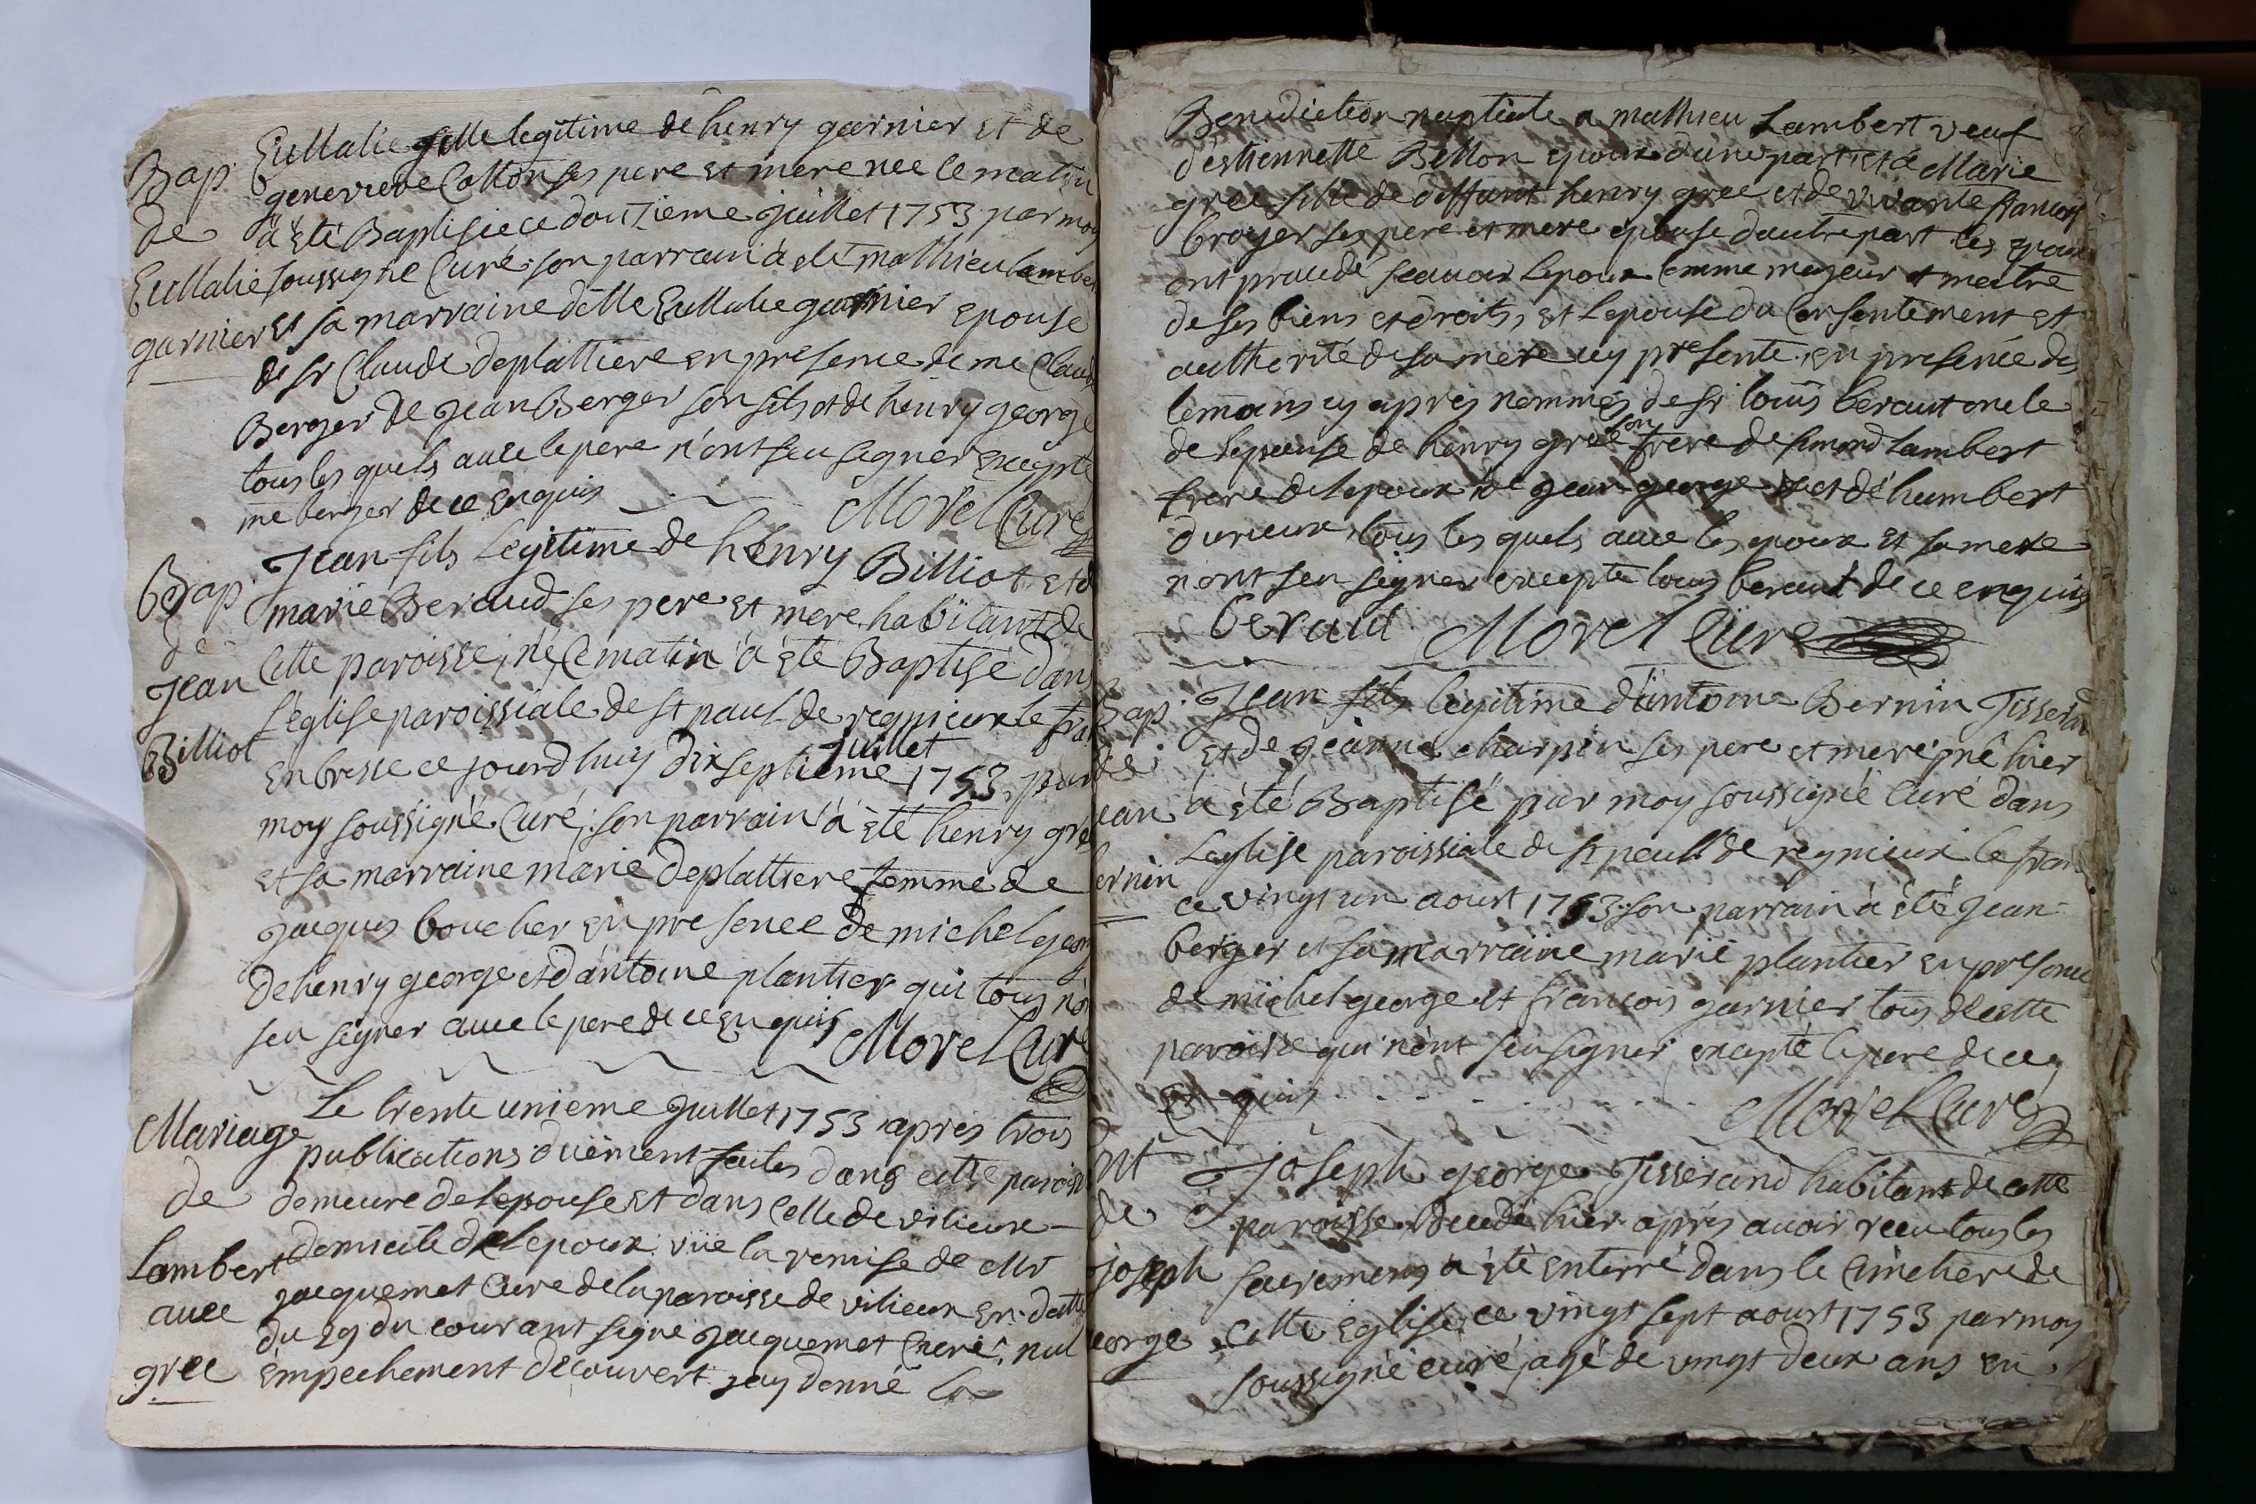 Bap.
de
Eullalie
garnier
Eullalie fille legitime de henry garnier et de
genevieve Cotton ses pere et mere neé ce matin
à été Baptiseé ce douzieme Juillet 1753 par moy
soussigné Curé; son parrain à été mathieu lamber
et sa marraine délle Eullalie garnier epouse
de sr Claude deplattiere en presence de me Claude
Berger de jean Berger son fils et de henry george
tous les quels avec le pere n'ont sçeu signer excepté
me berger de ce enquis
Morel Curé
Bap.
de
Jean
Billiot
Jean fils legitime de henry Billiot et de
marie Beraud ses pere et mere habitant de
Cette paroisse, né ce matin à été Baptisé dans
L'eglise paroissiale de st paul de regnieux le fran
en bresse ce jourd'huy dix septieme juillet 1753, par
moy soussigné Curé; son parrain à été henry gre
et sa marraine marie deplattiere femme de
jacques boucher en presence de michel geor
de henry george et d'antoine plantier qui tous n'o
seu signer avec le pere de ce enquis
Morel Curé
Mariage
de
Lambert
avec
greé
Le trente unieme Juillet 1753 après trois
publications duëment faites dans cette paroisse
demeure de l'epouse et dans Celle de vilieux
domicile de l'epoux vüe la remise de Mr
jacquemet Curé de la paroisse de vilieux en datte
du 29 du courant signé jacquemet Curé, nul
empechement decouvert jay donné la
Benediction nuptiale a mathieu Lambert veuf
d'estiennette Bellon epoux d'une part et à Marie
greé fille de deffunt henry greé et de vivante francoise
broyer ses pere et mere epouse d'autre part les epoux
ont procedé scavoir l'epoux comme majeur et maitre
de ses biens et droits, et l'epouse du Consentement et
authorité de sa mere icy presente, en presence des
temoins cy après nommés de sr louis beraut oncle
de l'epouse de henry greé son frere de simond lambert
frere de l'epoux de jean george et de humbert
durieux, tous les quels avec les epoux et sa mere
n'ont seu signer excepté louis beraut de ce enquis
beraud Morel Curé
Bap.
de
ean
ernin
Jean fils legitime d'antoine Bernin Tisserand
et de jeanne charpin ses pere et mere, né hier
à été Baptisé par moy soussigné Curé dans
L'eglise paroissiale de st paul de regnieux le fran
ce vingt un aoust 1753: son parrain à été jean
berger et sa marraine marie plantier en presence
de michel george et francois garnier tous de cette
paroisse qui n'ont seu signer excepté le pere de ce
enquis
Morel Curé
nt
de
joseph
eorge
Joseph george Tisserand habitant de cette
paroisse decedé hier après avoir receu tous les
sacremens à été enterré dans le Cimetiere de
Cette eglise ce vingt sept aoust 1753 par moy
soussigné curé, agé de vingt deux ans en